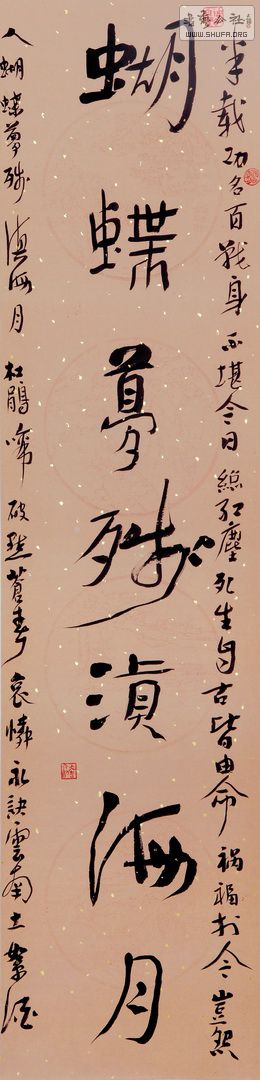 WWW.SHUFA.ORG
蝴蝶夢殘滇海月
半載功名百戰身不堪今日總紅塵死生自古皆由命禍福於今豈怨
人蝴蝶夢殘滇海月杜鵑啼破點蒼春哀憐永訣雲南土絮酒